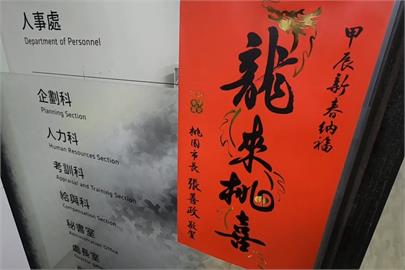 人事處
Department of Personnel
企劃科
Planning Section
人力科
Human Resources Section
考訓科
Appraisal and Training Section
給與科
Compensation Section
秘書室
Administration Office
處長室
甲辰新春納福
龍來桃喜
桃園市長 張善政 敬賀